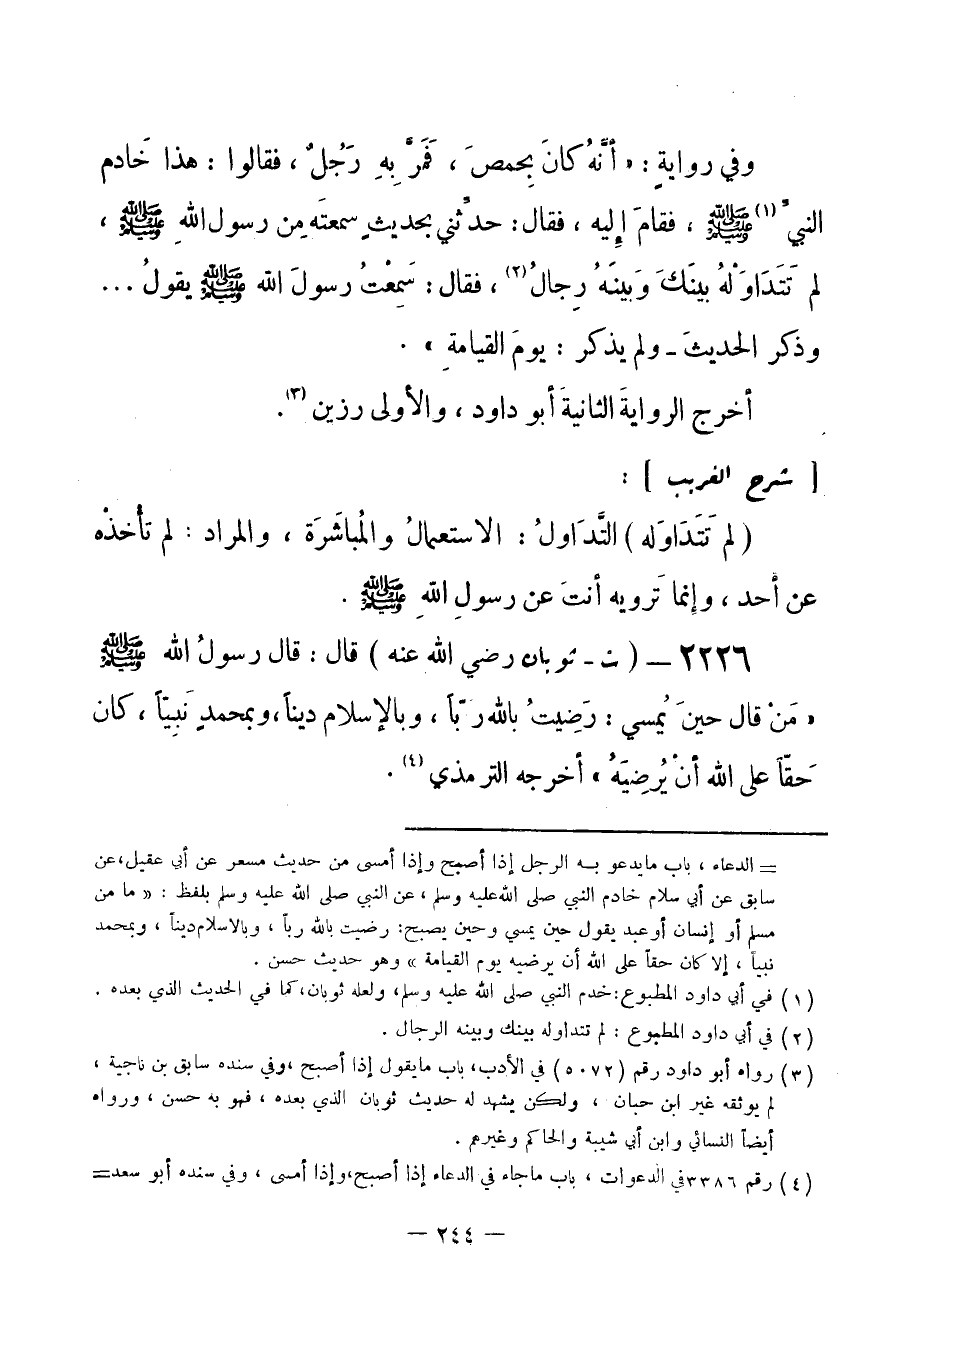 وفي روايةٍ : « أنَّهُ كانَ بِحمصَ ، فَمَرَّ بِهِ رَجُلٌ ، فقالوا : هذا خَادم
النبيِّ (١) ﷺ ، فقامَ إِليه ، فقال : حدثني بحديثٍ سمعتَه مِن رسول اللهِ ﷺ ،
لم تَتَدَاوَلْهُ بينَكَ وَبينَهُ رِجالٌ (٢) ، فقال : سَمِعْتُ رسولَ الله ﷺ يقولُ ...
وذكر الحديثَ ـ ولم يذكر : يومَ القيامةِ » .
أخرج الروايةَ الثانيةَ أبو داود ، والأولى رزين (٣) .
[ شرح الغريب ] :
( لم تَتَدَاوَله ) التَّدَاولُ : الاستعمالُ والمُباشَرَة ، والمراد : لم تأخذْه
عن أحد ، وإنما تَرويه أنتَ عن رسولِ اللهِ ﷺ .
٢٢٢٦ ـ ( ت ـ ثوبان رضي الله عنه ) قال : قال رسولُ الله ﷺ
« مَنْ قال حينَ يُمسي : رَضِيتُ بالله ربّاً ، وبالإسلام ديناً ، وبمحمدٍ نَبيّاً ، كان
حَقّاً على الله أنْ يُرضِيَهُ » أخرجه الترمذي (٤) .
= الدعاء ، باب مايدعو بـه الرجل إذا أصبح وإذا أمسى من حديث مسعر عن أبي عقيل ، عن
سابق عن أبي سلام خادم النبي صلى الله عليه وسلم ، عن النبي صلى الله عليه وسلم بلفظ : « ما من
مسلم أو إنسان أو عبد يقول حين يمسي وحين يصبح : رضيت بالله رباً ، وبالاسلام ديناً ، وبمحمد
نبياً ، إلا كان حقاً على الله أن يرضيه يوم القيامة » وهو حديث حسن .
(١) في أبي داود المطبوع : خدم النبي صلى الله عليه وسلم ، ولعله ثوبان ، كما في الحديث الذي بعده .
(٢) في أبي داود المطبوع : لم تتداوله بينك وبينه الرجال .
(٣) رواه أبو داود رقم (٥٠٧٢) في الأدب ، باب مايقول إذا أصبح ، وفي سنده سابق بن ناجية ،
لم يوثقه غير ابن حبان ، ولكن يشهد له حديث ثوبان الذي بعده ، فهو به حسن ، ورواه
أيضاً النسائي وابن أبي شيبة والحاكم وغيرهم .
(٤) رقم ٣٣٨٦ في الدعوات ، باب ماجاء في الدعاء إذا أصبح ، وإذا أمسى ، وفي سنده أبو سعد =
ـ ٢٤٤ ـ